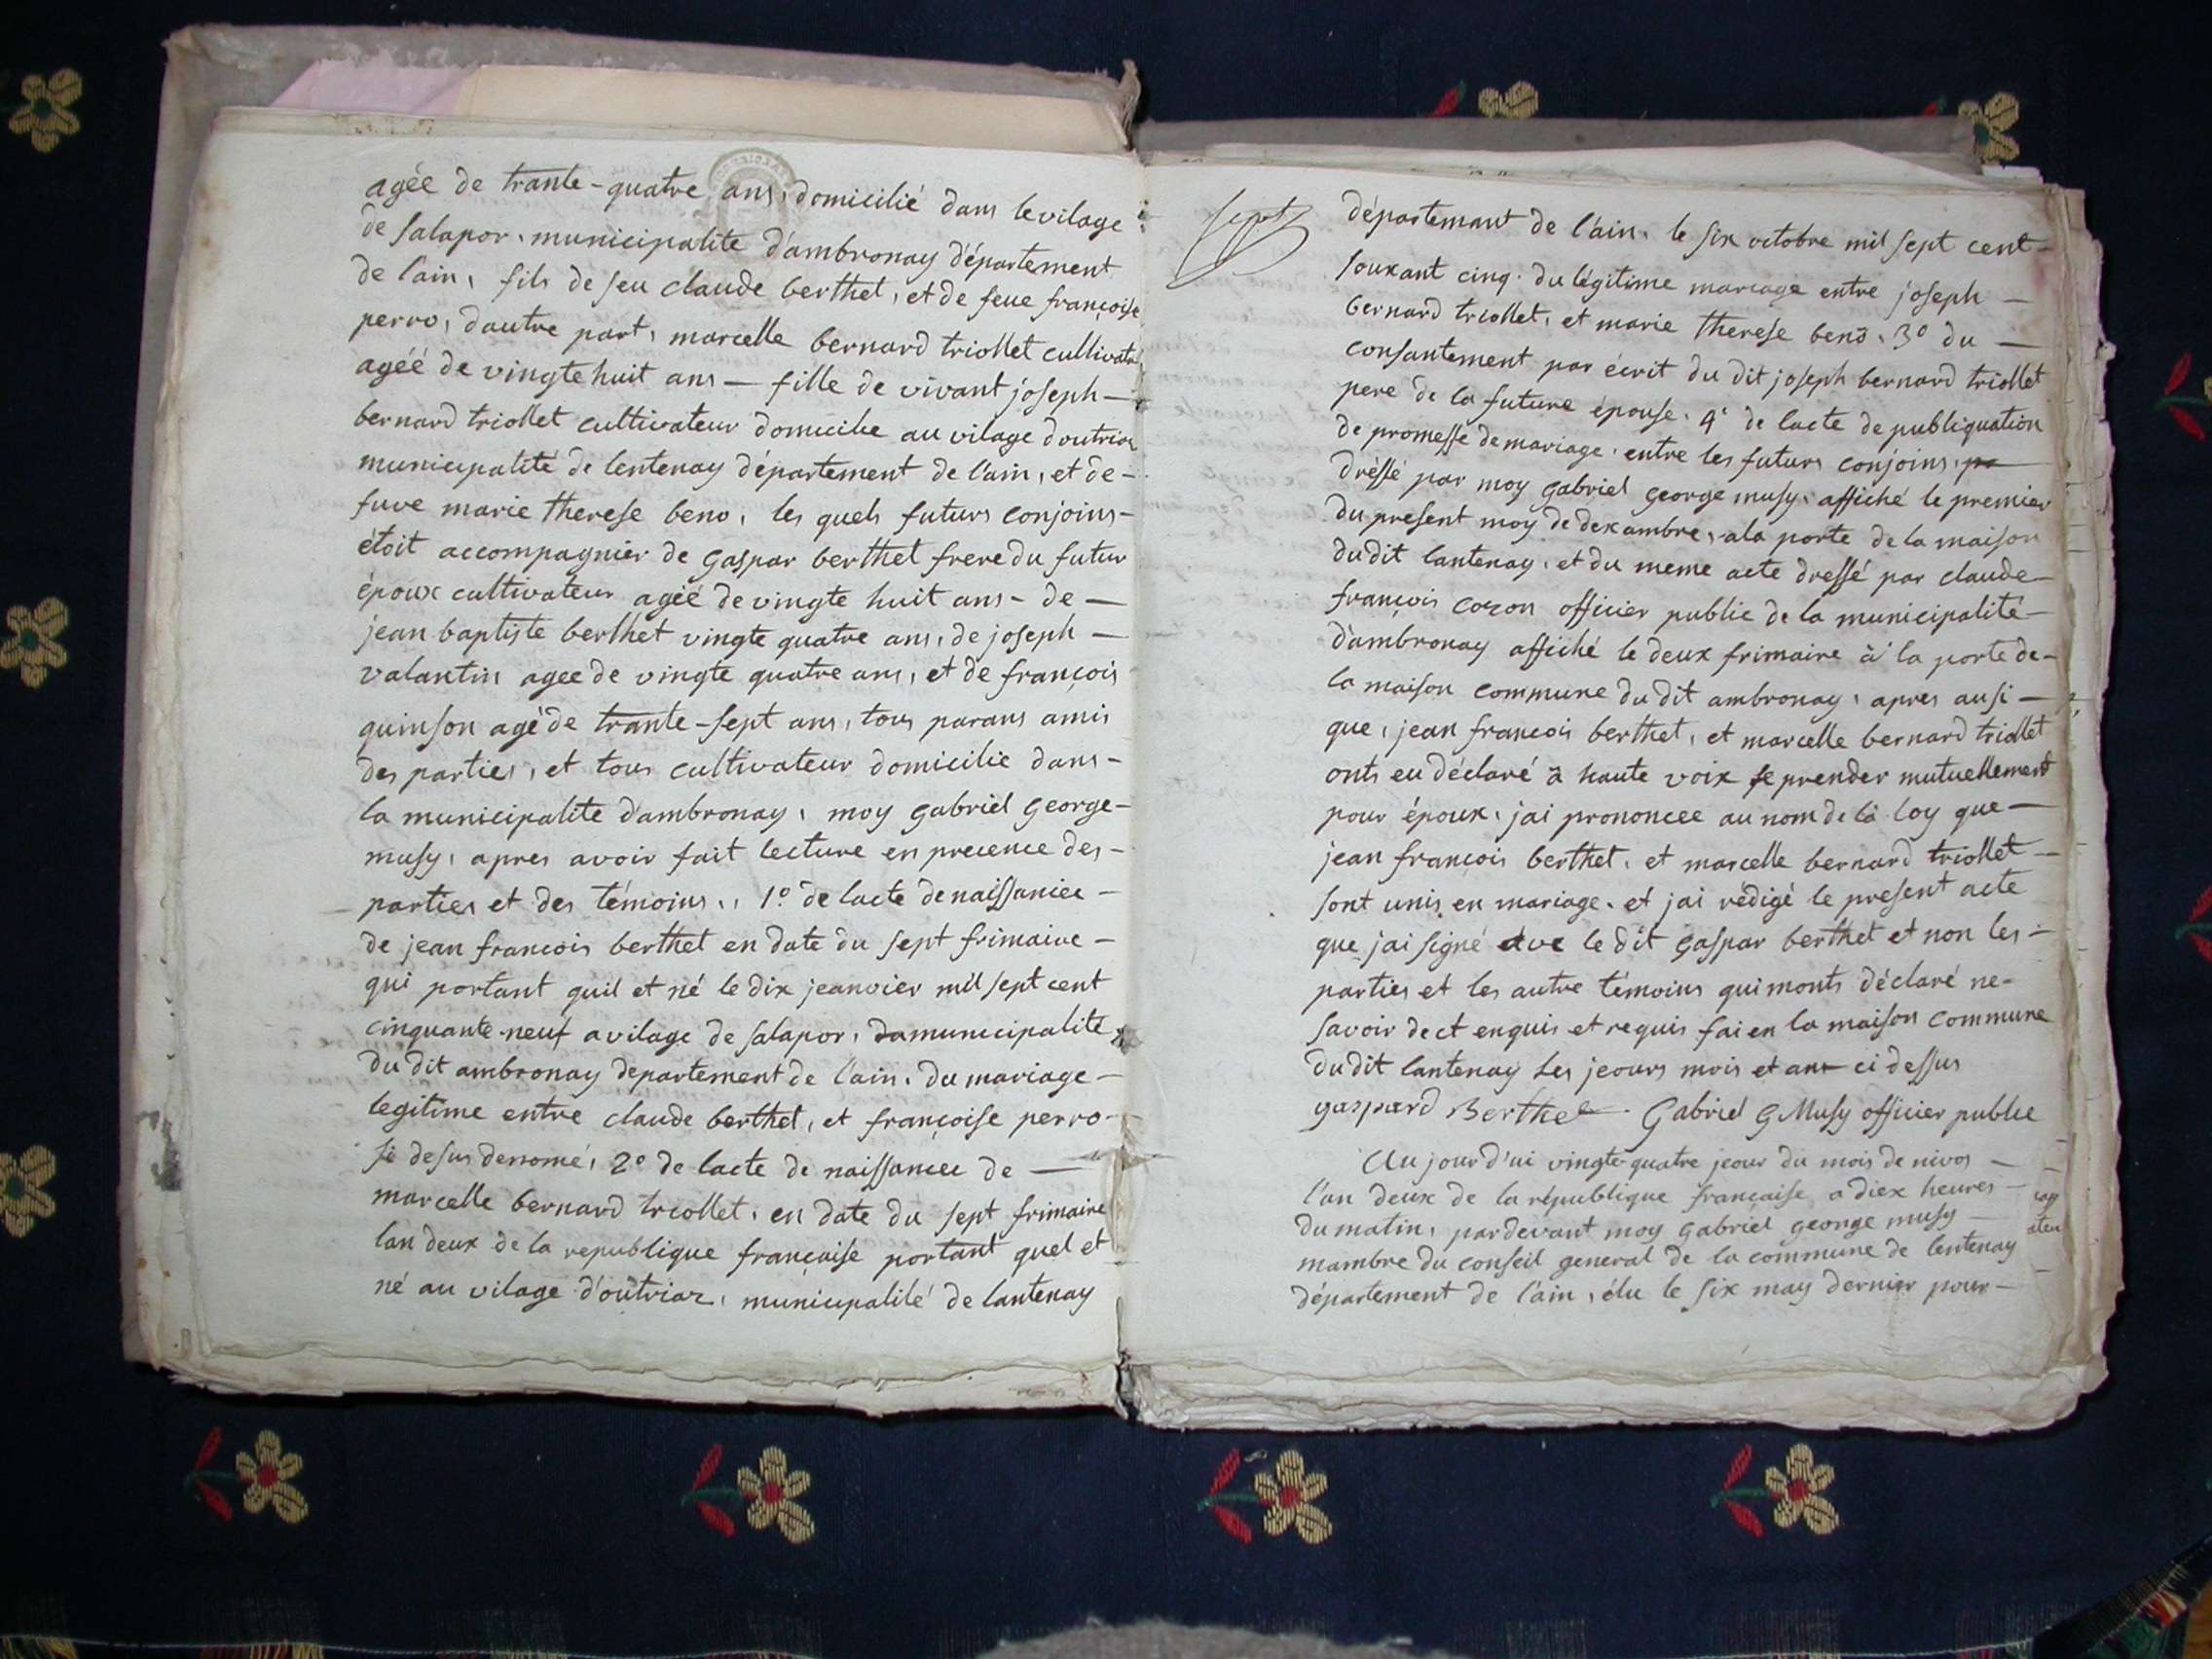 agéé de trante-quatre ans, domicilié dans le vilage
de salapor, municipalite d'ambronay département
de l'ain, fils de feu claude berthet, et de feue françoise
perro, dautre part, marcelle bernard triollet cultivate
agéé de vingte huit ans — fille de vivant joseph —
bernard triollet cultivateur domicilie au vilage doutriar
municipalité de lentenay département de l'ain, et de -
fuve marie therese beno, les quels futurs conjoins -
étoit accompagnier de gaspar berthet frere du futur
époux cultivateur agéé de vingte huit ans - de —
jean baptiste berthet vingte quatre ans, de joseph —
valantin agee de vingte quatre ans, et de françois
quinson agé de trante-sept ans, tous parans amis
des parties, et tous cultivateur domicilie dans -
la municipalite d'ambronay, moy gabriel george -
musy, apres avoir fait lecture en precence des -
parties et des témoins,, 1º de lacte de naissaniee -
de jean francois berthet en date du sept frimaire -
qui portant quil et né le dix jeanvier mil sept cent
cinquante-neuf a vilage de salapor, damunicipalite
du dit ambronay departement de l'ain. du mariage -
legitime entre claude berthet, et françoise perro -
si desus denomé, 2º de lacte de naissancee de —
marcelle bernard triollet, en date du sept frimaire
lan deux de la republique française portant quel et
né au vilage d'outriaz, municipalité de lantenay
sept
départemant de l'ain, le six octobre mil sept cent -
souxant cinq. du légitime mariage entre joseph —
bernard triollet, et marie therese beno. 3º du —
consantement par écrit du dit joseph bernard triollet
pere de la future épouse. 4º de lacte de publiquation
de promesse de mariage, entre les futurs conjoins, pa
dréssé par moy gabriel george musy, affiché le premier
du present moy de dexambre, ala porte de la maison
du dit lantenay, et du meme acte dressé par claude -
françois cozon officier public de la municipalité -
d'ambronay affiché le deux frimaire à la porte de -
la maison commune du dit ambronay, apres ausi —
que, jean francois berthet, et marcelle bernard triollet
onts eu déclaré à haute voix se prender mutuellemant
pour époux, jai prononcee au nom de la loy que —
jean francois berthet, et marcelle bernard triollet —
sont unis en mariage. et jai rédigé le present acte
que jai signé ave le dit gaspar berthet et non les -
parties et les autre témoins qui monts déclaré ne -
savoir de ct enquis et requis fai en la maison commune
du dit lantenay les jeours mois et ans ci dessus
gaspard Berthet Gabriel G Musy officier publie
Au jour d'ui vingte quatre jeour du mois de nivos —
l'an deux de la république française, a diex heures -
du matin, pardevant moy gabriel george musy —
mambre du conseil general de la commune de lentenay
département de l'ain, élu le six may dernier pour -